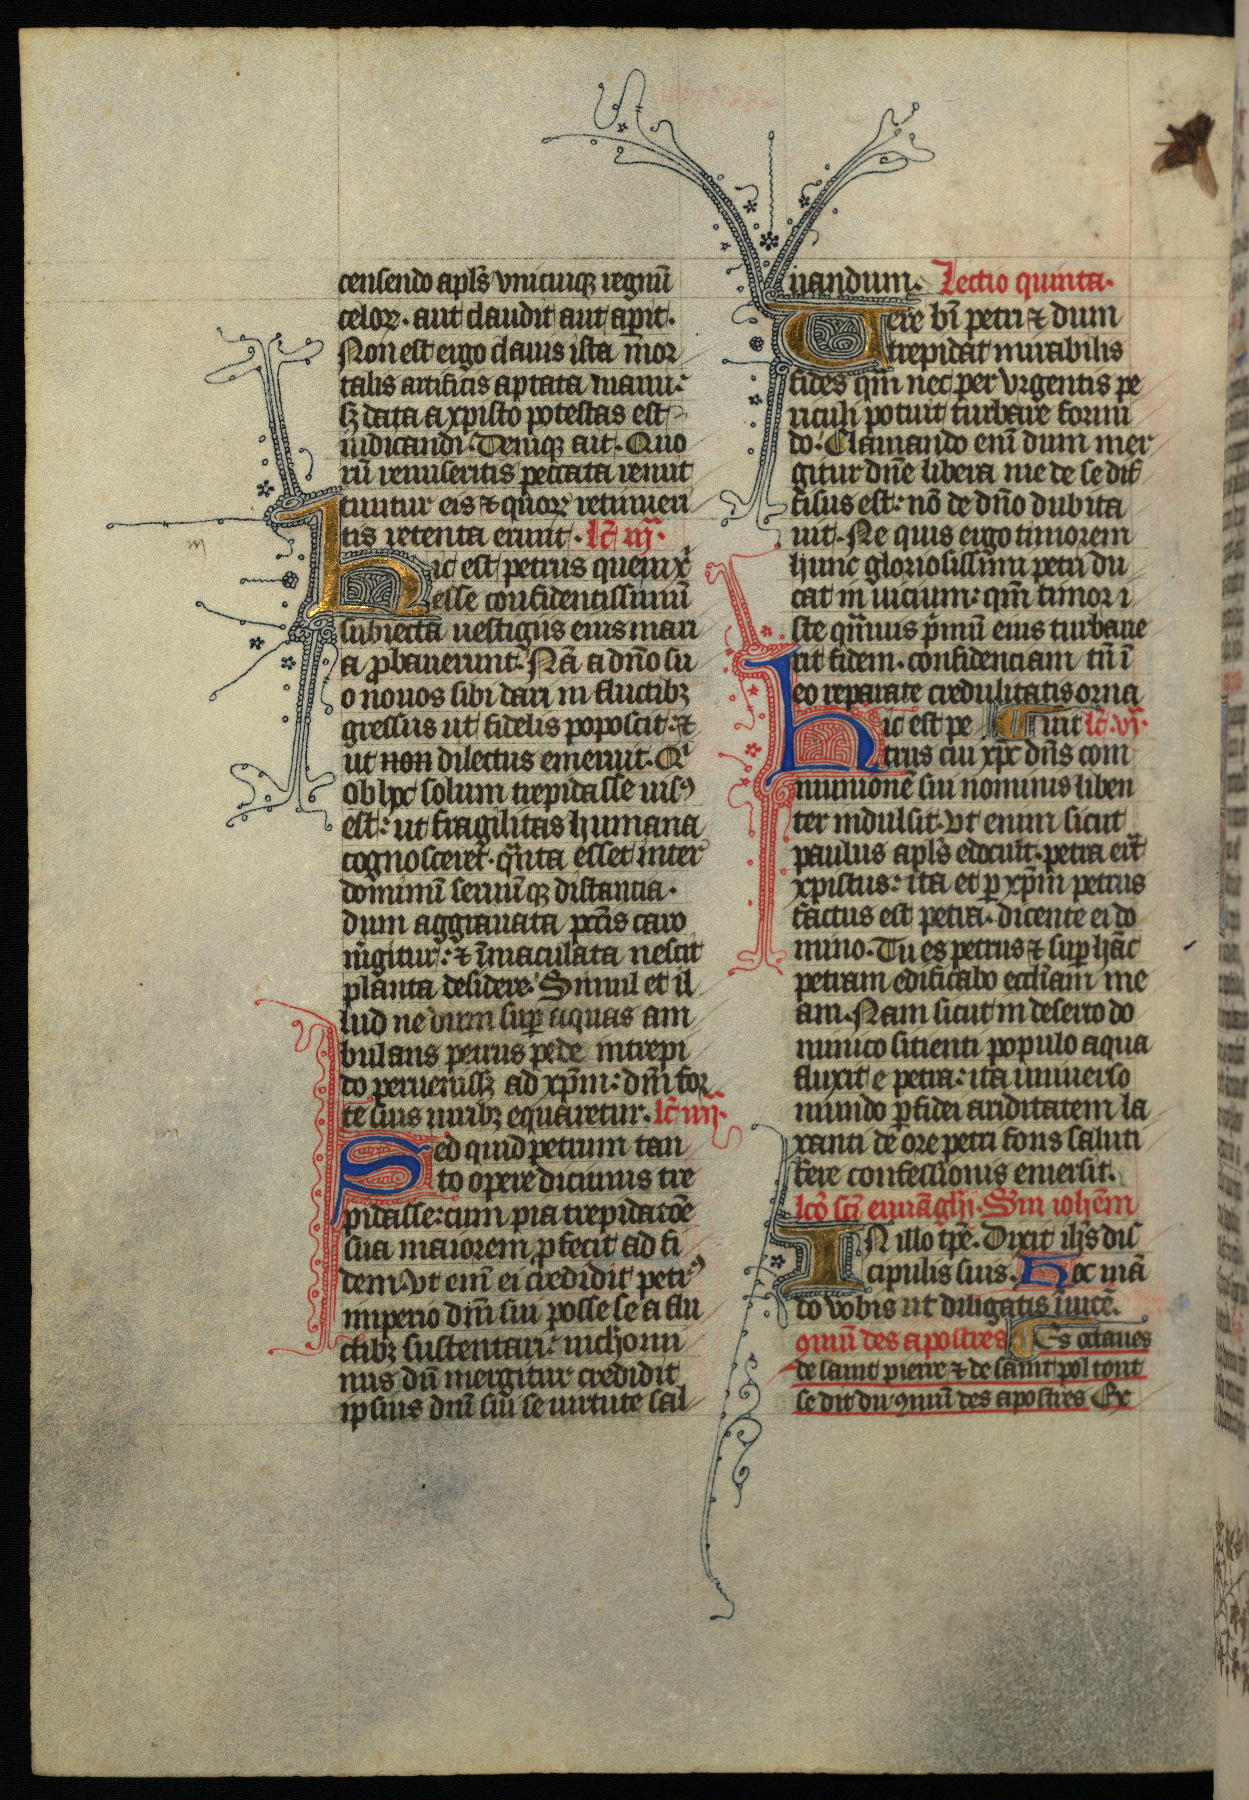 censendo apl̃s vnicuiqꝫ regnũ
celoꝝ. aut claudit aut aperit.
Non est ergo clauis ista mor
talis artificis aptata manu:
sꝫ data a xpisto potestas est
iudicandi. Deniqꝫ ait. Quo
rũ remiseritis peccata remit
tuntur eis ⁊ quoꝝ retinueri
tis retenta erunt. lc̃ iij.
hic est petrus quem xp̃i
esse confidentissimũ
subiecta uestigiis eius mari
a ꝓbauerunt. Nã a dño su
o nouos sibi dari in fluctibꝫ
gressus ut fidelis poposcit: ⁊
ut non dilectus emeruit. Qi
ob hoc solum trepidasse uisꝰ
est: ut fragilitas humana
cognosceret. q̃nta esset inter
dominũ seruũqꝫ distantia.
dum aggrauata pctis̃ caro
m̃gitur: ⁊ ĩmaculata nescit
planta desidere. Simul et il
lud ne dum suꝑ aquas am
bulans petrus pede intrepi
do peruenissꝫ ad xp̃m: dñi for
te sius uiribꝫ equaretur. lc̃ iiij.
Sed quid petrum tan
to opere dicimus tre
pidasse: cum pia trepidatõe
sua maiorem ꝓfecit ad fi
dem. Vt eni᷑ ei credidit petrꝰ
imperio dñi sui posse se a flu
ctibꝫ sustentari: nichomi
nus dũ mergitur credidit
ipsius dñi sui se uirtute sal
uandum. Lectio quinta.
Vere bĩ petri ⁊ dum
trepidat mirabilis
fides qm̃ nec per vrgentis pe
riculi potuit turbare formi
do. Clamando enĩ dum mer
gitur dñe libera me de se dif
fisus est: nõ de dño dubita
uit. Ne quis ergo timorem
hunc gloriosissimi petri du
cat in uicium: qm̃ timor i
ste q̃muis p̃mũ eius turbaue
rit fidem. confidenciam tñ ĩ
eo reparate credulitatis orna
uit lc̃. vj.
hic est pe
trus cui xp̃c dñs com
munionẽ sui nominis liben
ter indulsit. vt enim sicut
paulus apl̃s edocuit. petra erat
xpistus: ita et ꝑ xp̃m petrus
factus est petra. dicente ei do
mino. Tu es petrus ⁊ suꝑ hãc
petram edificabo eccl̃iam me
am. Nam sicut in deserto do
minico sitienti populo aqua
fluxit e petra: ita uniuerso
mundo ꝑfidei ariditatem la
xanti de ore petri fons saluti
fere confessionis emersit.
lcõ sc̃i euuãglij. Sm iohẽm
IN illo tp̃e. Dixit ih̃s dis
cipulis suis. Hec mã
do vobis ut diligatis ĩuicẽ.
ꝯmũ des apostres Es octaues
de saint pierre ⁊ de saint pol tout
se dit du ꝯmũ des apostres Ex